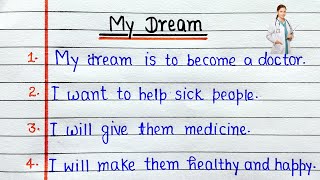 My Dream
1. My dream is to become a doctor.
2. I want to help sick people.
3. I will give them medicine.
4. I will make them healthy and happy.